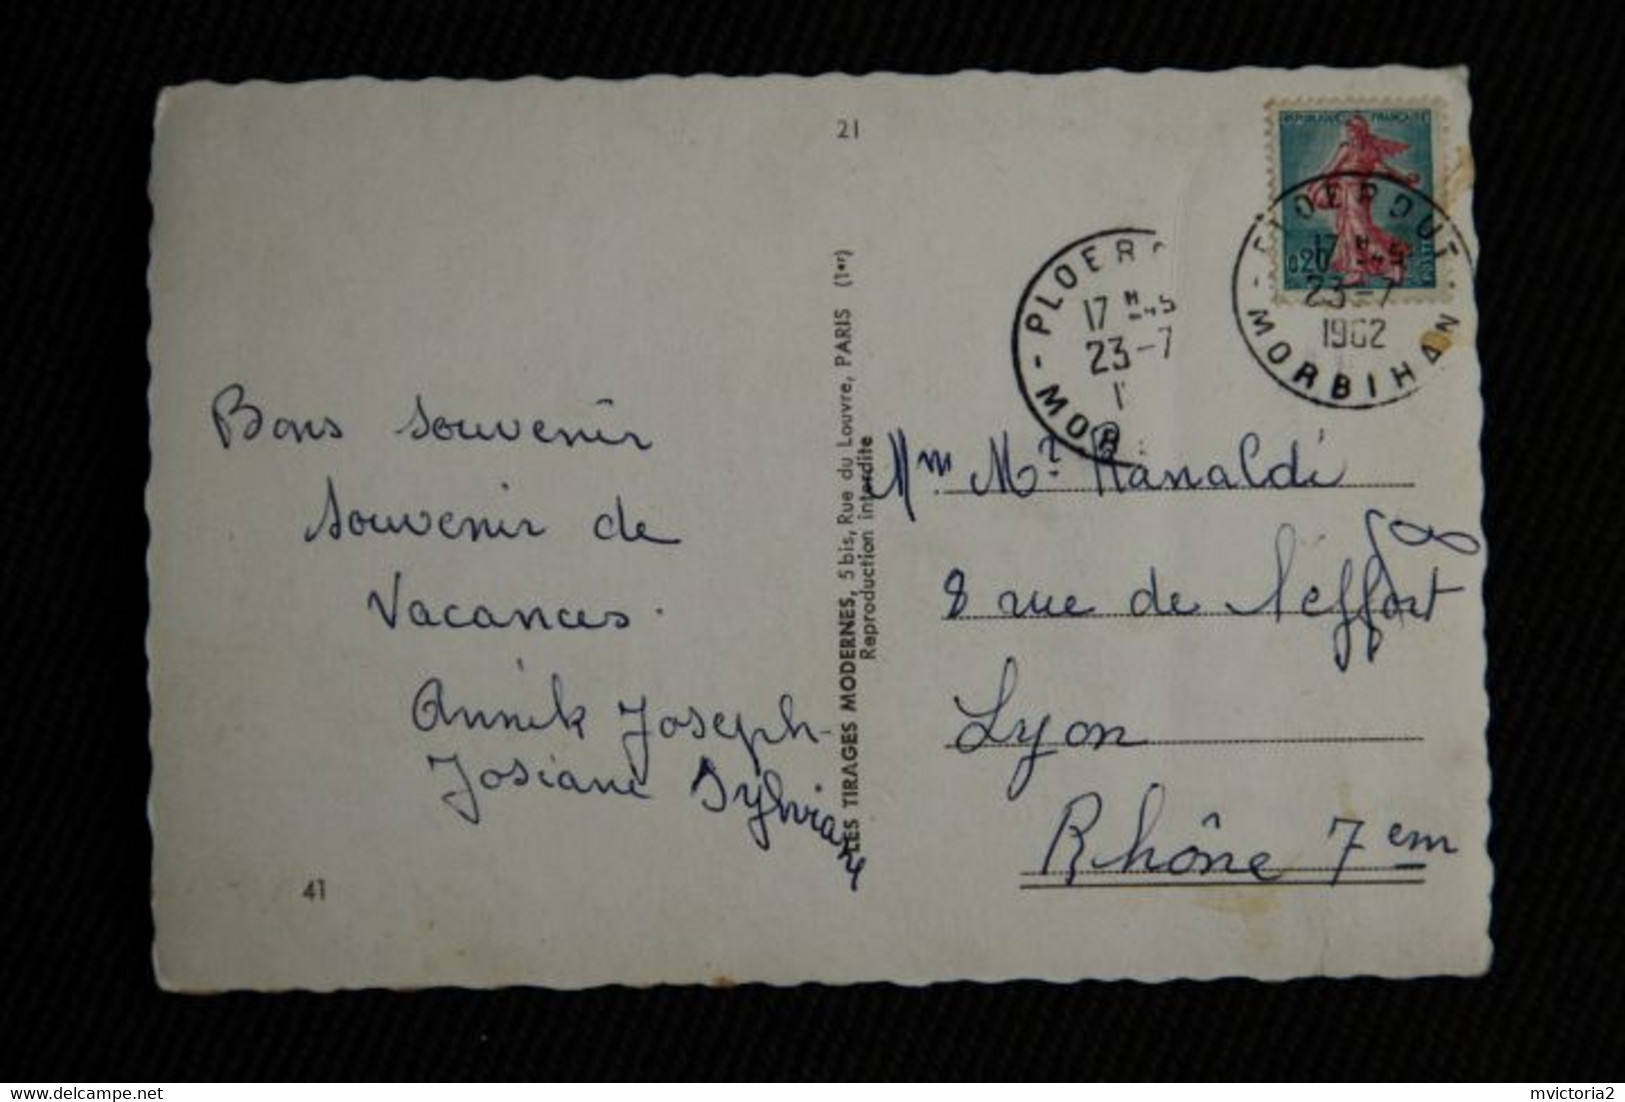 21
RÉPUBLIQUE FRANÇAISE
0,20
PLOERDUT
17 H -45
23-7
1962
MORBIHAN
PLOER
17 H -45
23-7
1
MOR
Bons souvenir
souvenir de
Vacances.
Annik Joseph
Josiane Sylviane
41
LES TIRAGES MODERNES, 5 bis, Rue du Louvre, PARIS (1er)
Reproduction interdite
Mm Mr Ranaldi
8 rue de l'effort
Lyon
Rhône 7em
delcampe.net
mvictoria2